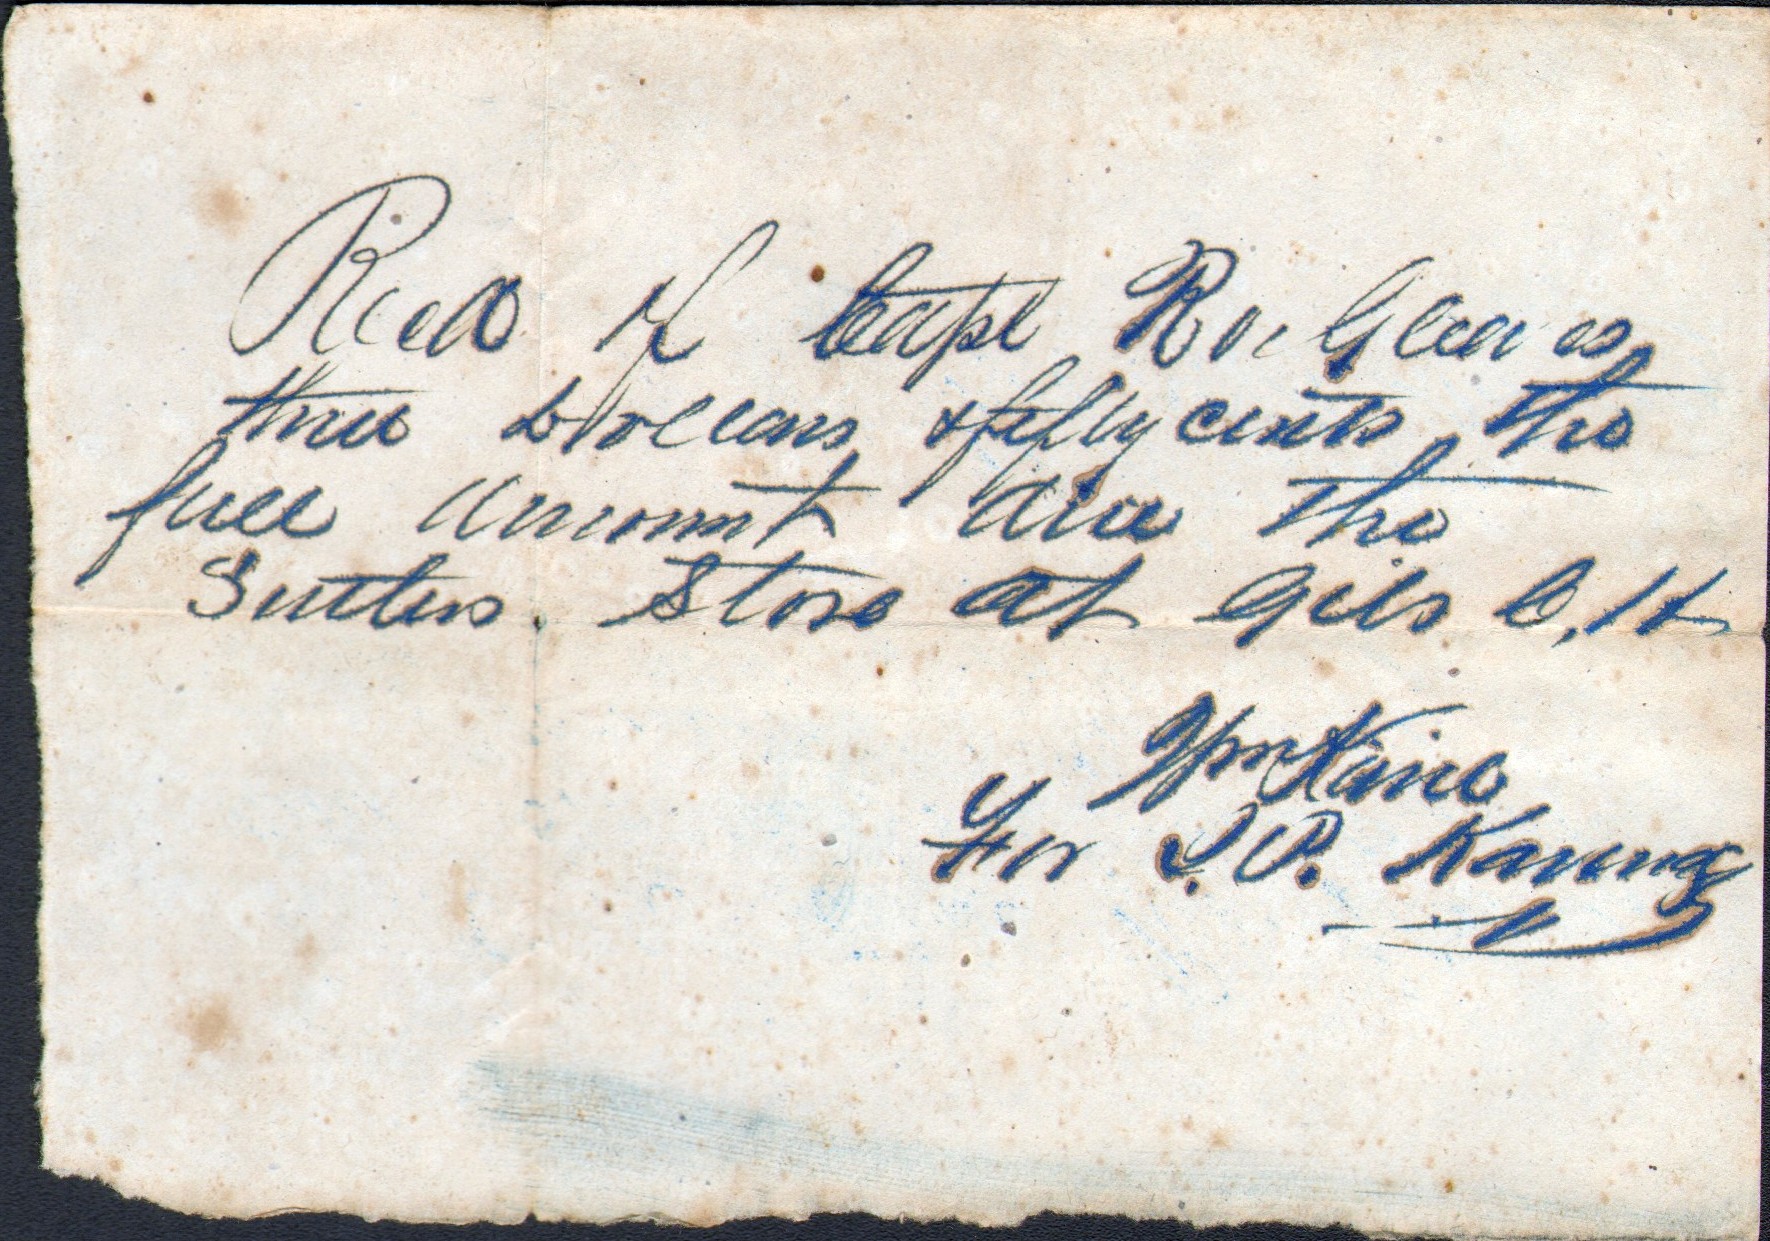 Recd of Capt R. Gleaves
three dollars & fifty cents the
full amount due the
Sutlers Store at
Wm Kane
For J. P.